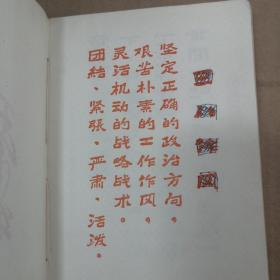 坚定正确的政治方向，
艰苦朴素的工作作风，
灵活机动的战略战术。
团結、紧張、严肃、活泼。